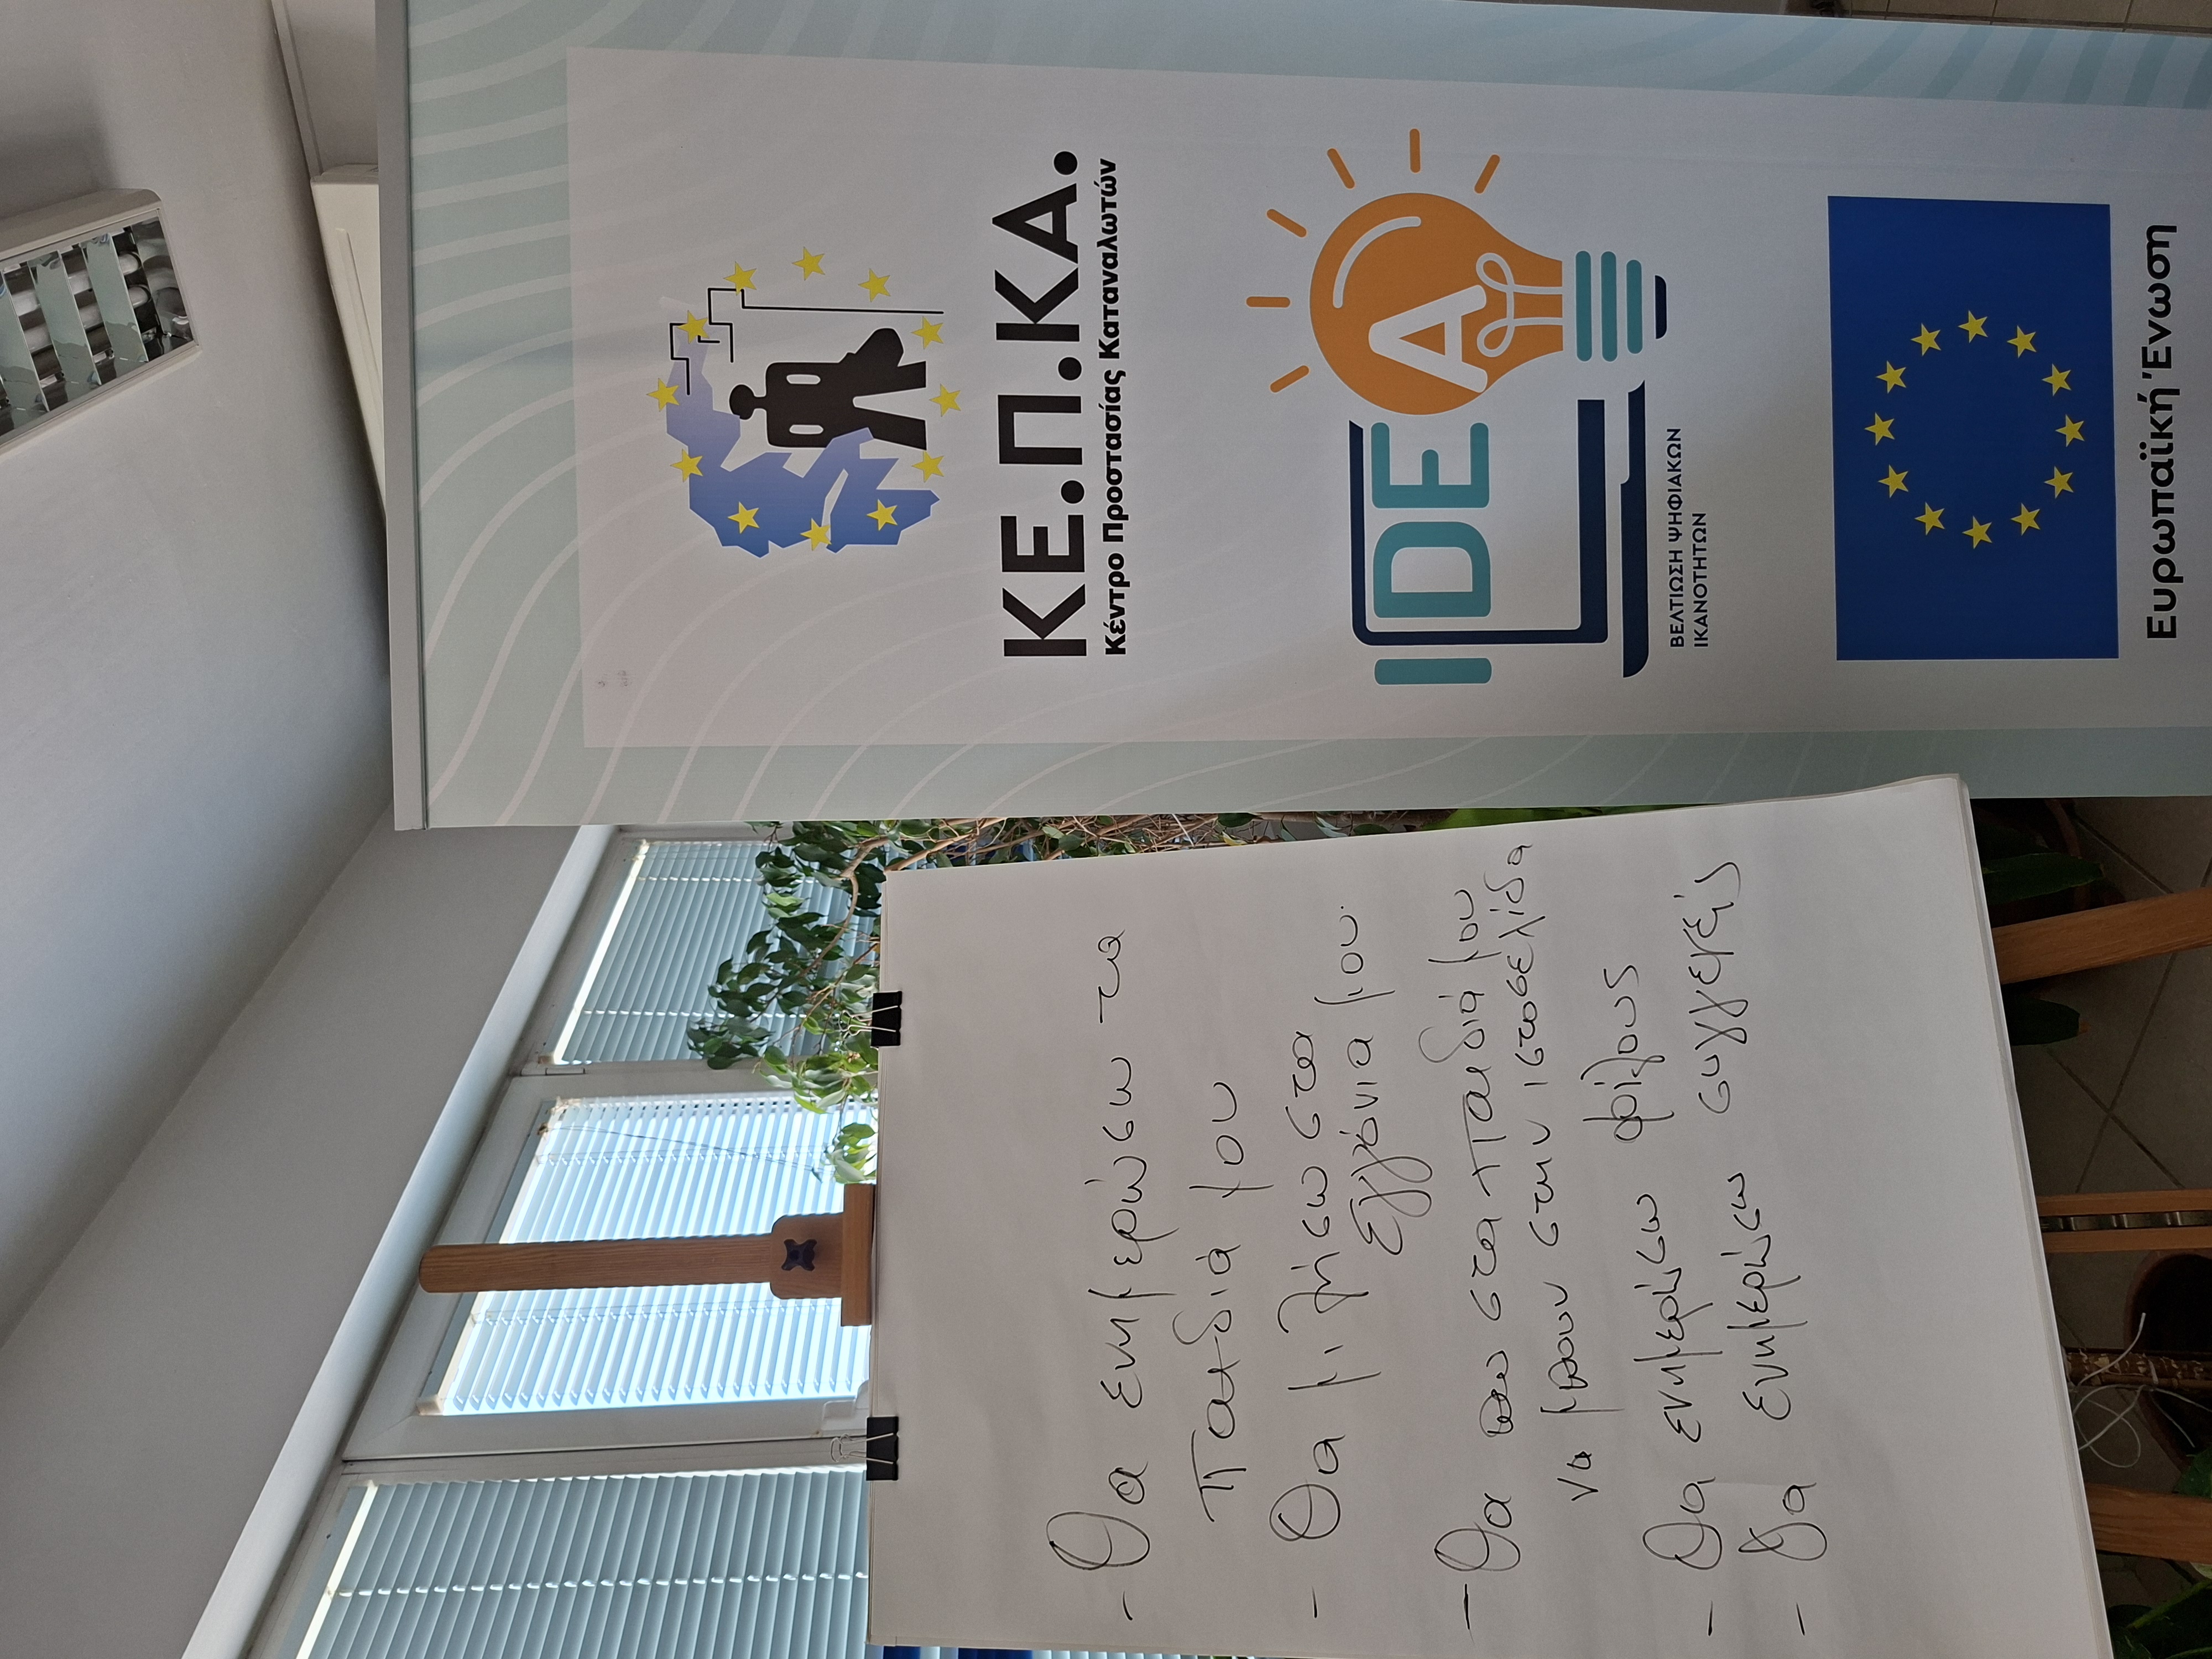 - Θα ενημερώσω τα
παιδιά μου
- Θα μιλήσω στα
εγγόνια μου.
- Θα πω στα παιδιά μου
να μπουν στην ιστοσελίδα
- Θα ενημερώσω φίλους
- Θα ενημερώσω συγγενείς
ΚΕ.Π.ΚΑ.
Κέντρο Προστασίας Καταναλωτών
IDEA
ΒΕΛΤΙΩΣΗ ΨΗΦΙΑΚΩΝ
ΙΚΑΝΟΤΗΤΩΝ
Ευρωπαϊκή Ένωση